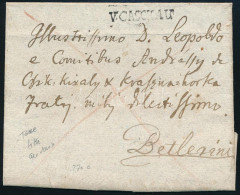 V. CASCHAU
Illustrissimo D. Leopoldo
e Comitibus Andrassy de
Csik Kiraly et Krasznahorka
Fratri mihi dilectissimo.
Betlerini